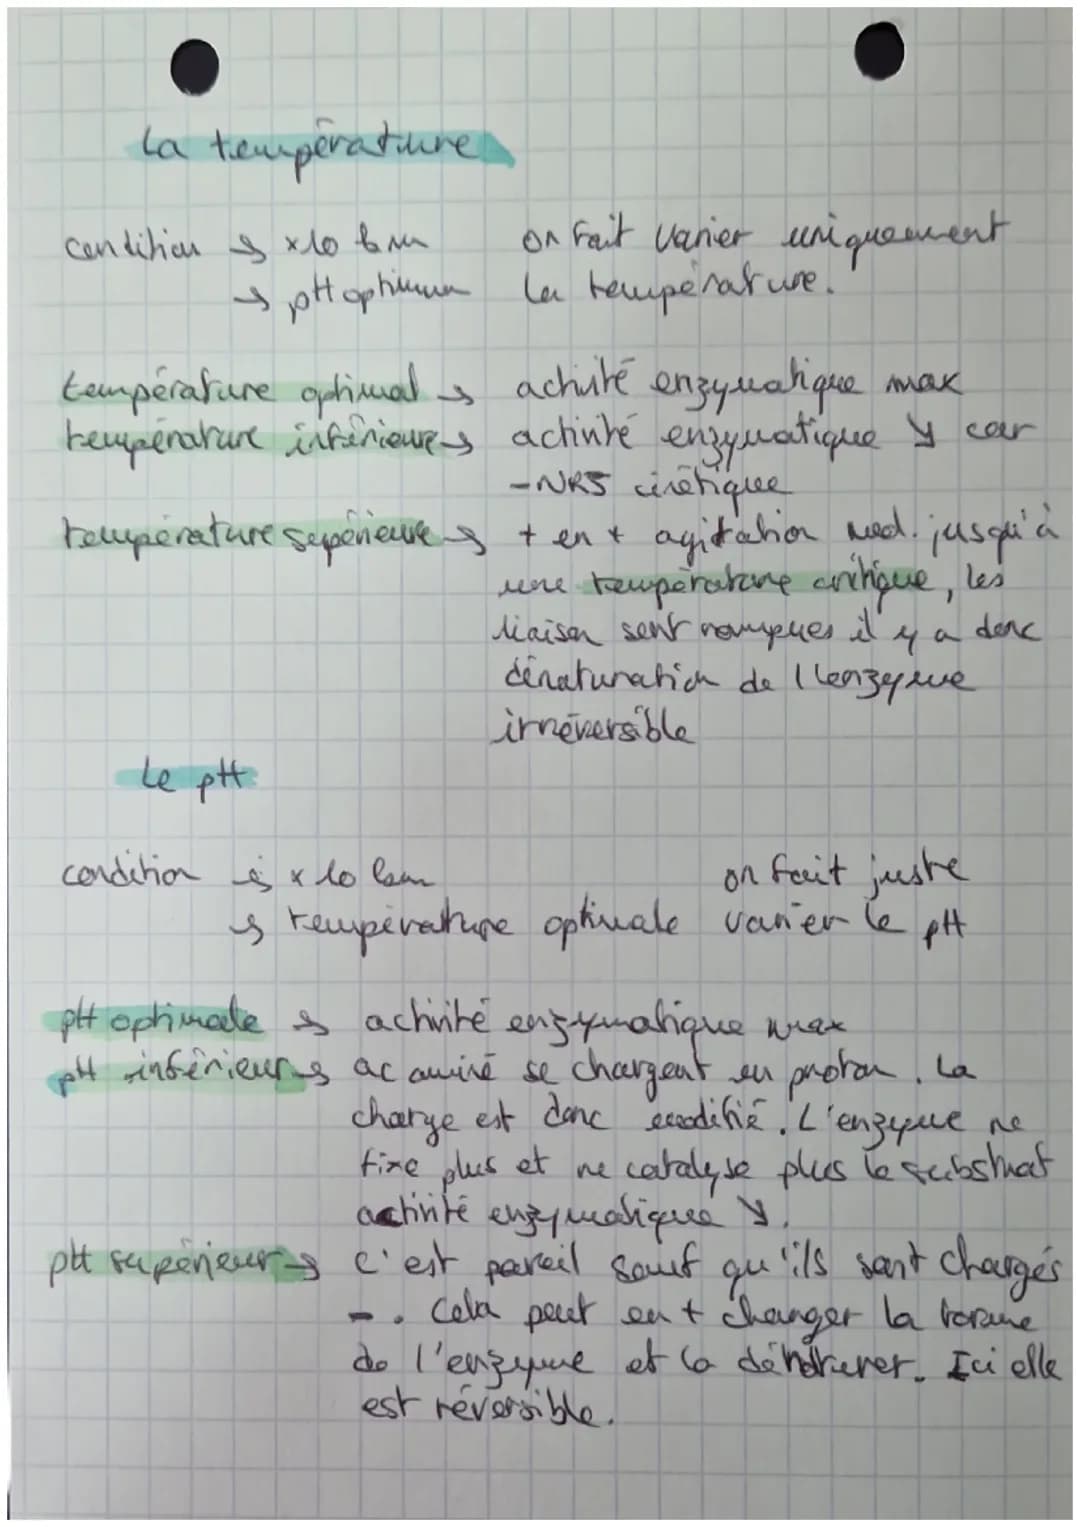 La température
condition → x10 km on fait varier uniquement
→ pH optimum la température.
température optimal → activité enzymatique max
température inférieure → activité enzymatique ↘ car
-NRJ cinétique
température supérieure → + en + agitation jusqu'à
une température critique, les
liaison sont rompues il y a donc
dénaturation de l'enzyme
irréversible
Le pH
condition → x 10 km on fait juste
→ température optimale varier le pH
pH optimale → activité enzymatique max
pH inférieur → ac aminé se chargent en proton. La
charge est donc modifié. L'enzyme ne
fixe plus et ne catalyse plus le substrat
activité enzymatique ↘.
pH supérieur → c'est pareil sauf qu'ils sont chargés
-. Cela peut en + changer la forme
de l'enzyme et la dénaturer. Ici elle
est réversible.